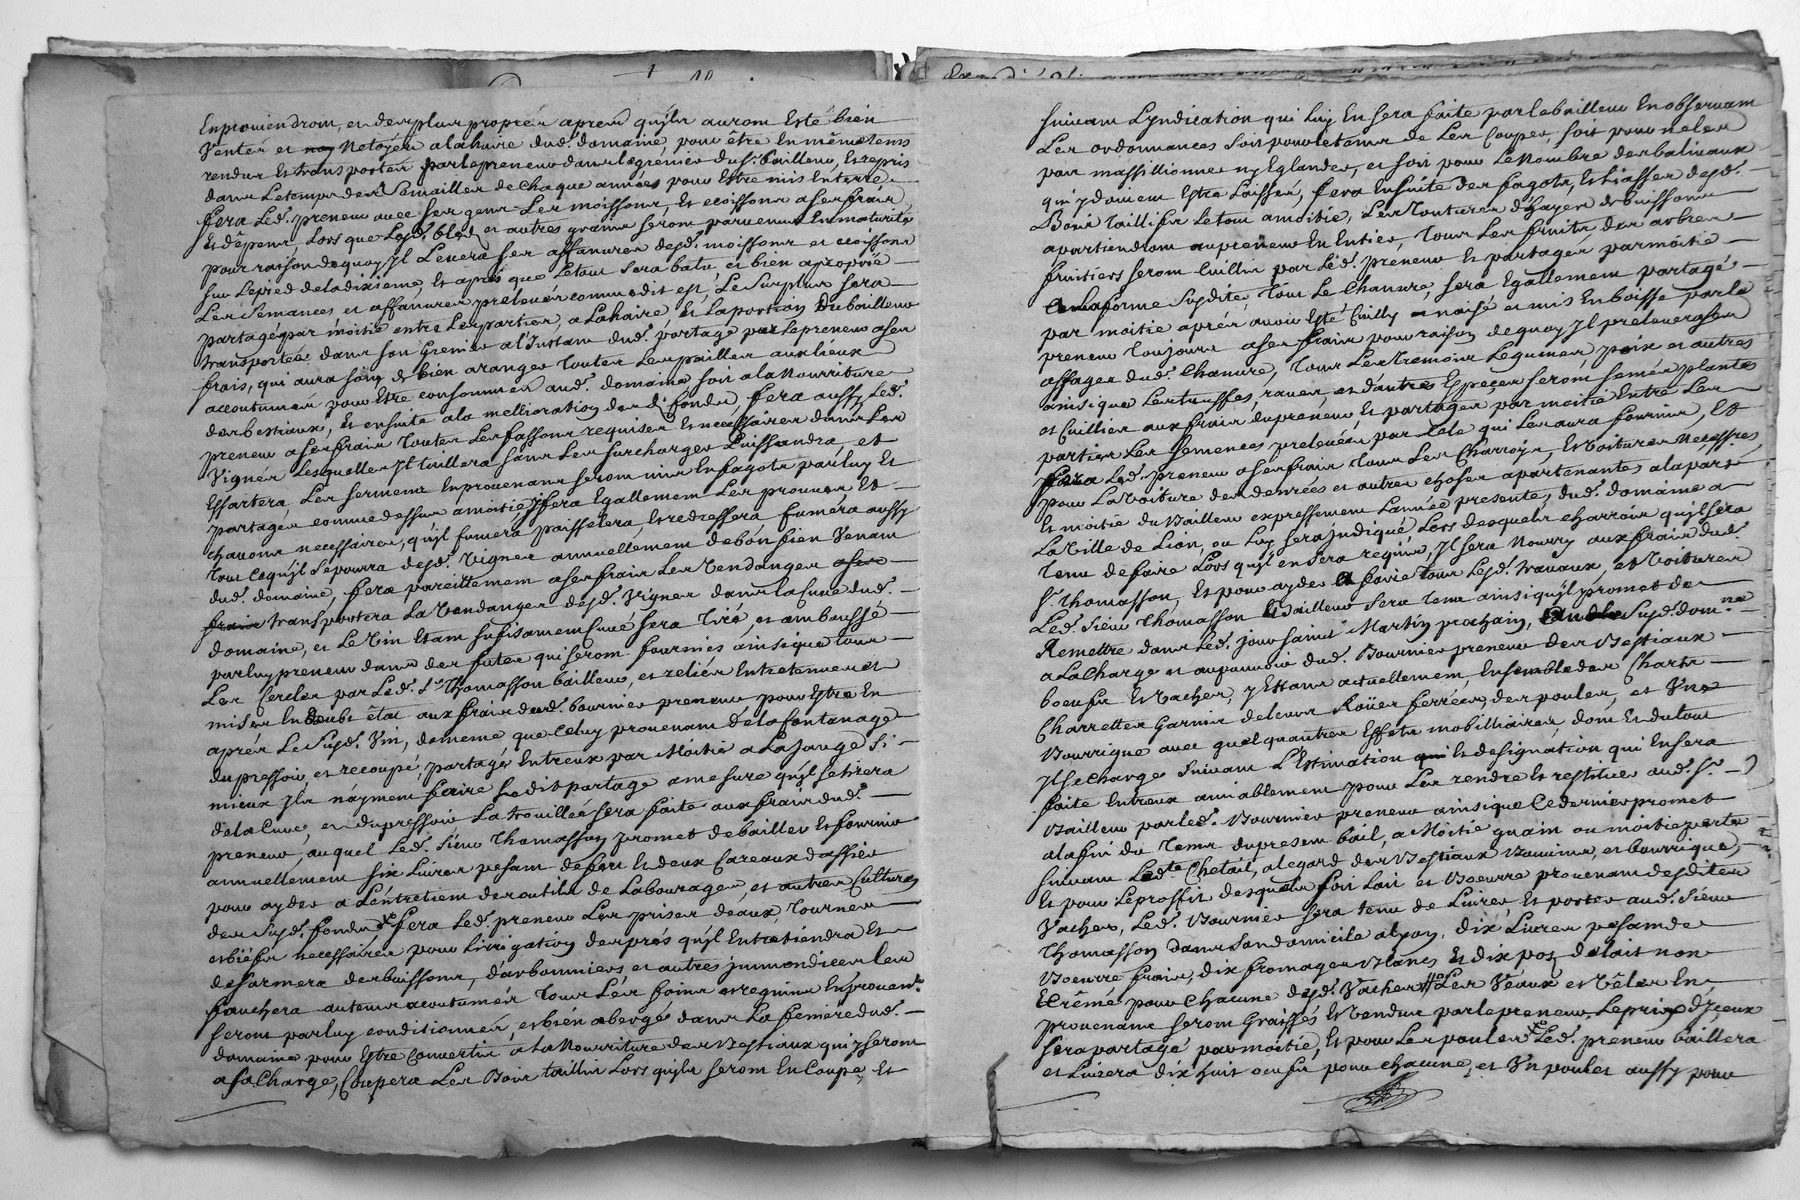 Enproviendrom, et desplus propres apres quylz aurom Esté bien
Ventés et Netoyés alahaire dud. domaine, pour être En mêmetems
rendus Et transportés parlepreneur danslegrenier dusr. bailleur, Et repris
dans Letemps des Semailles de chaque années pour Estre mis Enterre
fera Led. preneur avec ses gens Les moissons, Et ecossons asesfrais
Et dêpens Lors que Lesd. bled et autres grains serom parvenus Enmaturité
pour raison dequoy Jl Levera ses affanures desd. moissons et ecossons
sur Lepied deladixieme, Et après que Letout sera batu et bien aproprié
Les Semances et affanures prelevés comme dit est, Le Surplus sera
partagé par moitié entre Les parties, a Lahaire et Laportion Dubailleur
transportée dans son Grenier a l'Instam dud. partage par Lepreneur ases
frais, qui aura soin de bien aranger Toutes Lespailles auxlieux
accoutumés pour Etre consommés aud. domaine soit ala Nourriture
desbestiaux, Et ensuite ala mellioration desd. fonds, fera aussy Led.
preneur asesfrais Toutes Lesfassons requises Et necessaires dans Les
Vignes Lesquelles Jl taillera sans Les surcharger Puissandra, et
Essartera, Les sermens Enprovenans serom mis Enfagots parluy Et
partagés commedessus amoitié Jl fera Egallement Les provins Et
chavons necessaires, qu'yl fumera paisselera, Et redressera fumera aussy
Tout cequ'yl Sepourra desd. Vignes annuellement debon fien Venam
dud. domaine, fera pareillement asesfrais Les Vendanges
transportera La Vendange desd. Vignes dans lacuve dud.
domaine, et Le Vin Etam sufisamem Cuvé sera Tiré, et amboussé
parluy preneur dans des futes qui serom fournies ainsique tous
Les Cercles par Led. Sr. Thomasson bailleur, et reliés Entretenues et
mises En Etat aux frais dud. bournier preneur pour Estre En
après Le Susd. Vin, dememe que Celuy provenam Delafontanage
dupressoir et recoupé, partagé Entreux par Moitié a La Jauge Si
mieux Jls n'ayment faire Le dit partage amesure qu'yl setirera
delaCuve, et dupressoir La trouillée sera faite aux frais dud.
preneur, auquel Led. Sieur Thomasson promet debailler Et fournir
annuellement six Livres pesam de fer Et deux Careaux d'affier
pour ayder a L'entretien desoutils de Labourages, et autres Cultures
des susd. fonds fera Led. preneur Les prises deaux, Tournes
et biefs necessaires pour L'irrigation després qu'yl Entretiendra Et
desarmera desbuissons, d'arbonniers et autres jmmondices les
fauchera autems acoutumés Tous Les foins et reguins Enprovent.
serom parluy conditionnés, et bien abergés dans La feniére dud.
domaine pour Estre Convertis a La Nourriture des Vestiaux qui y serom
a saCharge, Coupera Les Bois taillis Lors qu'yls serom En Coupe, Et
suivam L'yndication qui luy En sera faite par lebailleur En observam
Les ordonnances soit pour letems de Les Couper, soit pour neles
pas massillionner ny Eglander, et soit pour Lenombre desbaliveaux
qui y doivem Estre Laissés, fera Ensuite des fagots, Et liasses desd.
Bois Taillis Letout amoitié, Les Toutures d'hayes et buissons
apartiendrom aupreneur En Entier, Tous Les fruits des arbres
fruitiers serom Cuillis par Led. preneur Et partagés parmoitié
En laforme susdite, Tout Le Chanvre, sera Egallement partagé
par moitié aprés avoir Esté Cuilly naisé et mis Enboisse par le
preneur Toujours asesfrais pour raison dequoy Jl prelevera ses
affages dud. Chanvre, Tous Les Tremois Legumes poix et autres
ainsique Lestruffes, raves, et d'autres Especes serom semés plantés
et Cuillies aux frais dupreneur Et partagés par moitié Entre Les
parties Les semences prelevées par Celle qui Les aura fournis, Et
fera Led. preneur asesfrais Tous Les Charrois, Et Voitures Necessres.
pour LaVoiture desdenrées et autres choses apartenantes alapart
Et moitié du Bailleur expressement L'année presente, dud. domaine a
LaVille de Lion, ou luy sera judiqué Lors desquels charrois qu'yl sera
Tenu defaire Lors qu'yl en sera requis, Jl sera Nourry aux frais dud.
Sr. Thomasson, Et pour ayder a faire tous Lesd. travaux, et Voitures
Led. Sieur Thomasson Bailleur sera Tenu ainsiqu'yl promet de
Remettre dans Led. jour saint Martin prochain, Susd. domne.
a la Charge et aupouvoir dud. Bournier preneur des Vestiaux
boeufs Et Vaches, y Estans actuellement, Ensemble des Chars
Charrettes Garnis deleurs Roües ferrées, des poules, et Une
Bourrique avec quelquautres Effets mobilliaires, dont Et dutout
Jl se charge Suivam L'Estimation Et designation qui Ensera
faite Entreux amiablement pour Les rendre Et restituer aud. Sr.
Bailleur par led. Bournier preneur ainsique Cedernier promet
alafin du Tems dupresem bail, a Moitié gain ou moitié perte
suivam Ledte. Chetail, alegard des Vestiaux Bovins, et bourrique,
Et pour Leproffit desquels soit Lait et Boeurre provenam desdites
Vaches, Led. Bournier sera tenu de Livrer Et porter aud. Sieur
Thomasson dans Sondomicile alyon, dix Livres pesamde
Boeurre frais, dix fromages Blancs Et dix pos delait non
Ecrémé pour Chacune desd. Vaches Les Véaux et Véles En
provenans serom Graissés Et Vendus parlepreneur, Leprix d'jceux
sera partagé par moitié, Et pour Les poules Led. preneur baillera
et Livrera dix huit oeufs pour chacune, et Un poulet aussy pour